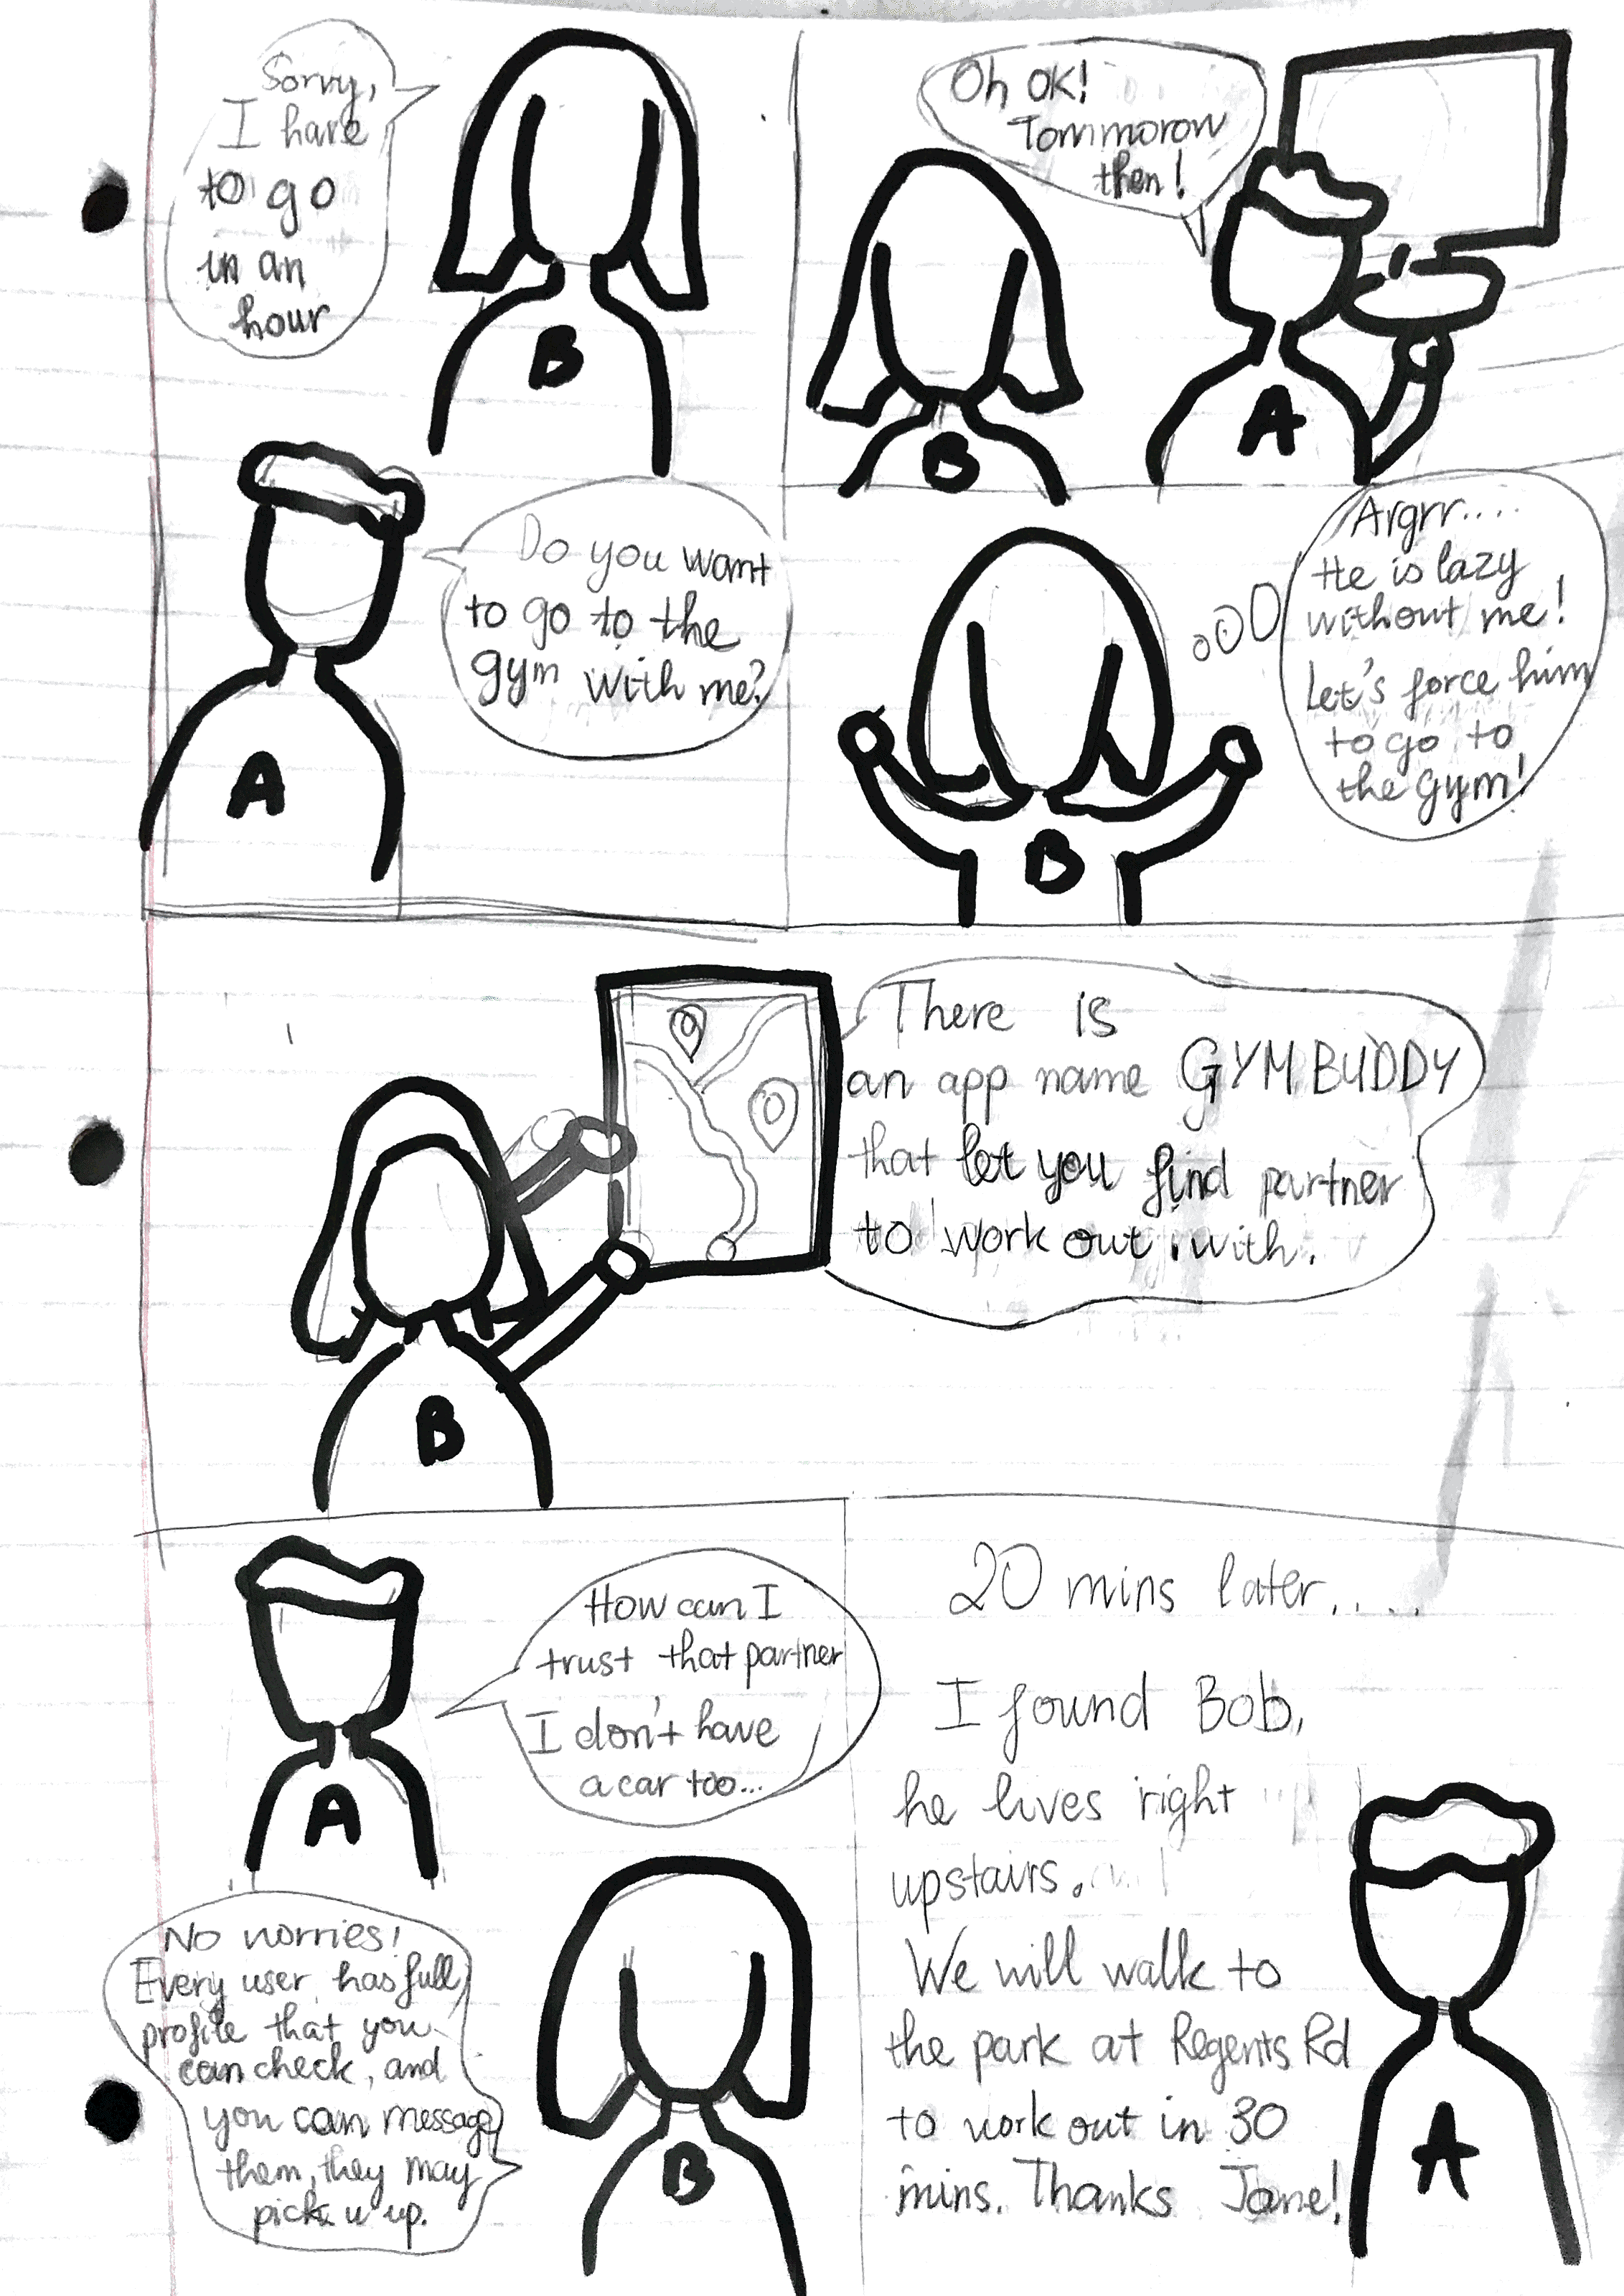 Sorry,
I have
to go
in an
hour
B
Do you want
to go to the
gym with me?
A
Oh OK!
Tommorow
then!
B
A
Argrr....
He is lazy
without me!
Let's force him
to go to
the gym!
B
There is
an app name GYM BUDDY
that let you find partner
to work out with.
B
How can I
trust that partner
I don't have
a car too...
A
No worries!
Every user has full
profile that you
can check, and
you can message
them, they may
pick u up.
B
20 mins later....
I found Bob,
he lives right
upstairs.
We will walk to
the park at Regents Rd
to work out in 30
mins. Thanks Jane!
A